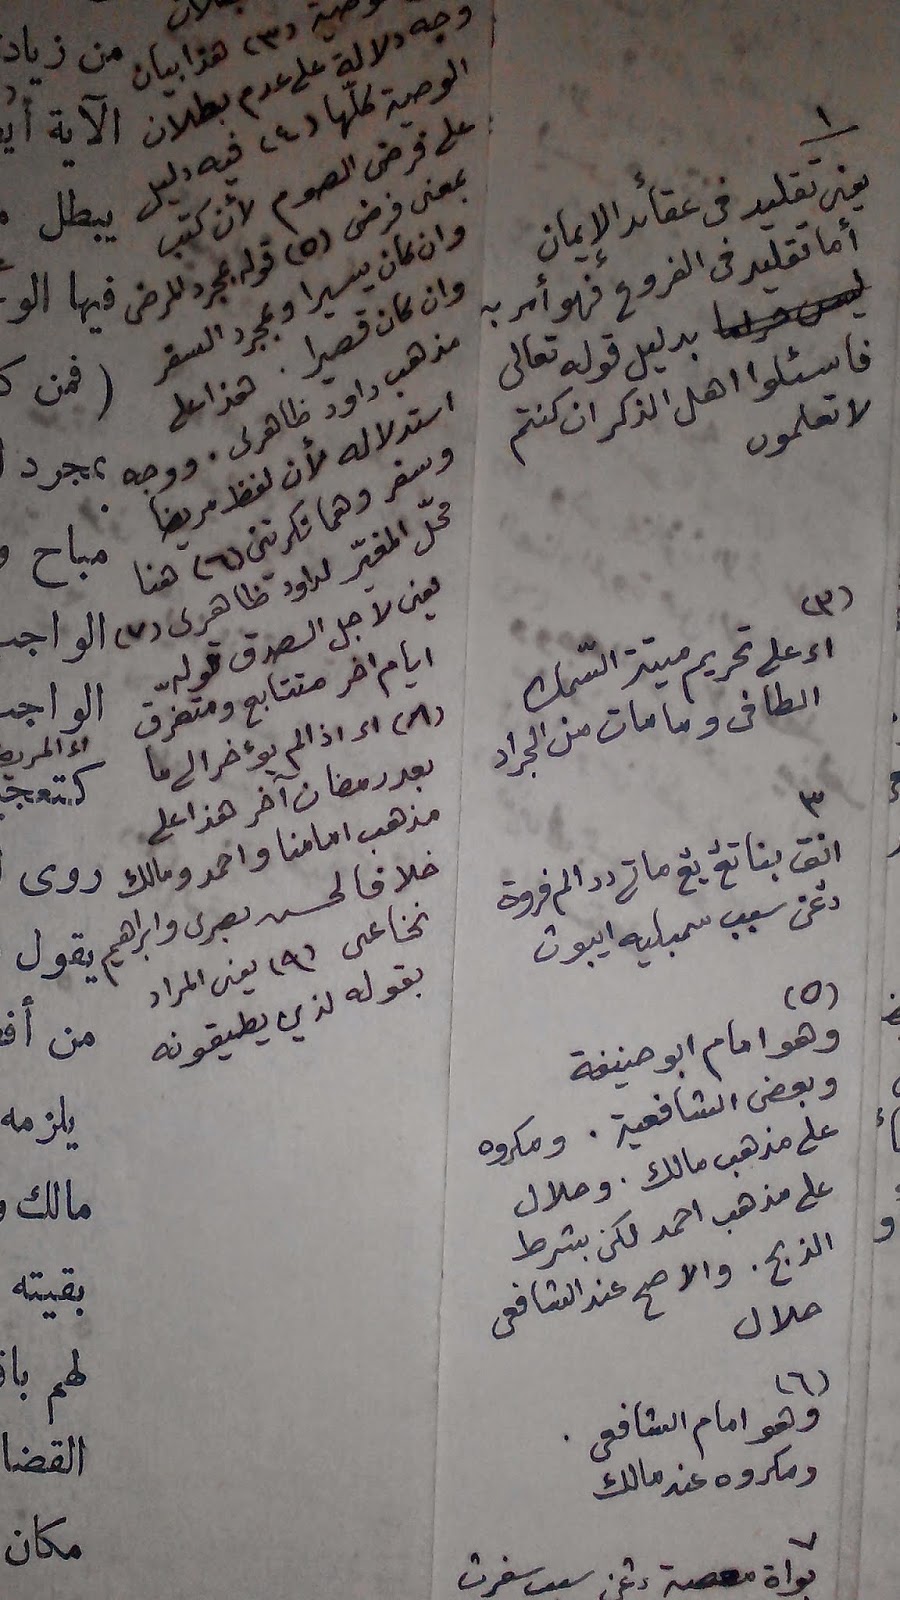 ١
يعنى تقليد فى عقائد الإيمان
أما تقليد فى الفروع فهو أمر به
ليس حراما بدليل قوله تعالى
فاسئلوا اهل الذكر ان كنتم
لا تعلمون
(٣)
اى على تحريم ميتة السّمك
الطافى وما مات من الجراد
٣
دڠن سبب سمبليه ايبوڽ
(٥)
وهو امام ابو حنيفة
وبعض الشافعية . ومكروه
على مذهب مالك . وحلال
على مذهب احمد لكن بشرط
الذبح . والاصح عند الشافعى
حلال
(٦)
وهو امام الشافعى .
ومكروه عند مالك
٧
دڠن سبب سفرت
(٣) هذا بيان
وجه دلالة على عدم بطلان
الوصية كلّها (٤) فيه دليل
على فرض الصوم لأن كتب
بمعنى فرض (٥) قوله بمجرد المرض
وان كان يسيرا وبمجرد السفر
وان كان قصيرا . هذا على
مذهب داود ظاهرى . ووجه
استدلاله لأن لفظ مريضا
وسفر وهما نكرتين (٦) هنا
محلّ المغيّر لداود ظاهرى (٧)
يعنى لاجل الصدق قوله
ايام اخر متتابع ومتفرّق
(٨) اى اذا لم يوءخر الى ما
بعد رمضان آخر هذا على
مذهب امامنا واحمد ومالك
خلافا لحسن بصرى وابراهيم
نخاعى (٩) يعنى المراد
بقوله لذين يطيقونه
من زياد
الآية
يبطل
فيها
(فمن
بمجرد
مباح
الواجب
الواجب
روى
يقول
من
يلزمه
مالك
بقيته
لهم
القضا
مكان